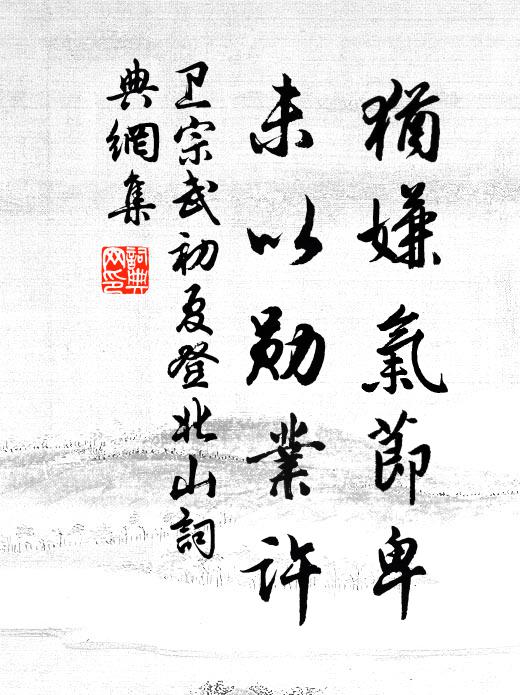 猶嫌氣節卑
未以勛業許
卫宗武初夏登北山詞
典網集
詞典
网印